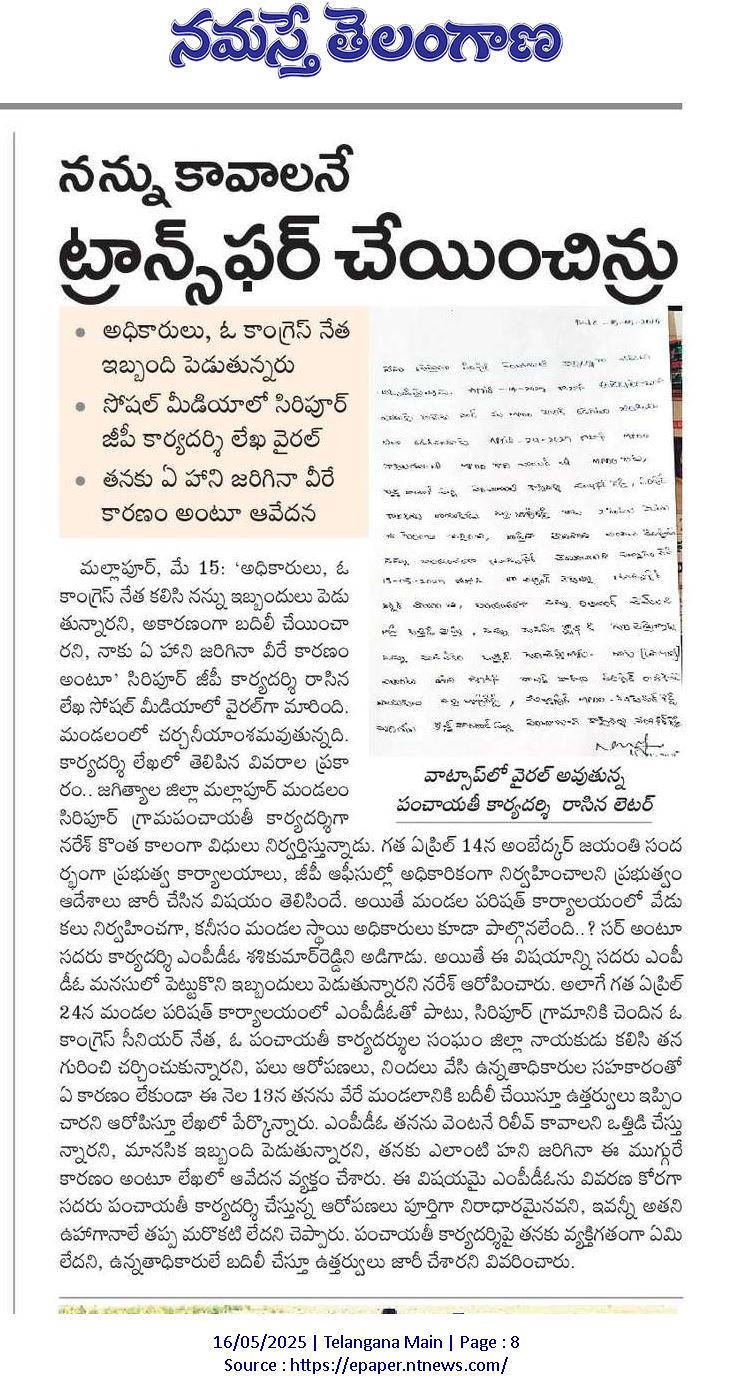 నమస్తే తెలంగాణ
నన్ను కావాలనే
ట్రాన్స్‌ఫర్ చేయించిన్రు
అధికారులు, ఓ కాంగ్రెస్ నేత
ఇబ్బంది పెడుతున్నరు
సోషల్ మీడియాలో సిరిపూర్
జీపీ కార్యదర్శి లేఖ వైరల్
తనకు ఏ హాని జరిగినా వీరే
కారణం అంటూ ఆవేదన
మల్లాపూర్, మే 15: ‘అధికారులు, ఓ
కాంగ్రెస్ నేత కలిసి నన్ను ఇబ్బందులు పెడు
తున్నారని, అకారణంగా బదిలీ చేయించా
రని, నాకు ఏ హాని జరిగినా వీరే కారణం
అంటూ’ సిరిపూర్ జీపీ కార్యదర్శి రాసిన
లేఖ సోషల్ మీడియాలో వైరల్‌గా మారింది.
మండలంలో చర్చనీయాంశమవుతున్నది.
కార్యదర్శి లేఖలో తెలిపిన వివరాల ప్రకా
రం.. జగిత్యాల జిల్లా మల్లాపూర్ మండలం
సిరిపూర్ గ్రామపంచాయతీ కార్యదర్శిగా
వాట్సాప్‌లో వైరల్ అవుతున్న
పంచాయతీ కార్యదర్శి రాసిన లెటర్
నరేశ్ కొంత కాలంగా విధులు నిర్వర్తిస్తున్నాడు. గత ఏప్రిల్ 14న అంబేద్కర్ జయంతి సంద
ర్భంగా ప్రభుత్వ కార్యాలయాలు, జీపీ ఆఫీసుల్లో అధికారికంగా నిర్వహించాలని ప్రభుత్వం
ఆదేశాలు జారీ చేసిన విషయం తెలిసిందే. అయితే మండల పరిషత్ కార్యాలయంలో వేడు
కలు నిర్వహించగా, కనీసం మండల స్థాయి అధికారులు కూడా పాల్గొనలేంది..? సర్ అంటూ
సదరు కార్యదర్శి ఎంపీడీఓ శశికుమార్‌రెడ్డిని అడిగాడు. అయితే ఈ విషయాన్ని సదరు ఎంపీ
డీఓ మనసులో పెట్టుకొని ఇబ్బందులు పెడుతున్నారని నరేశ్ ఆరోపించారు. అలాగే గత ఏప్రిల్
24న మండల పరిషత్ కార్యాలయంలో ఎంపీడీఓతో పాటు, సిరిపూర్ గ్రామానికి చెందిన ఓ
కాంగ్రెస్ సీనియర్ నేత, ఓ పంచాయతీ కార్యదర్శుల సంఘం జిల్లా నాయకుడు కలిసి తన
గురించి చర్చించుకున్నారని, పలు ఆరోపణలు, నిందలు వేసి ఉన్నతాధికారుల సహకారంతో
ఏ కారణం లేకుండా ఈ నెల 13న తనను వేరే మండలానికి బదీలీ చేయిస్తూ ఉత్తర్వులు ఇప్పిం
చారని ఆరోపిస్తూ లేఖలో పేర్కొన్నారు. ఎంపీడీఓ తనను వెంటనే రిలీవ్ కావాలని ఒత్తిడి చేస్తు
న్నారని, మానసిక ఇబ్బంది పెడుతున్నారని, తనకు ఎలాంటి హని జరిగినా ఈ ముగ్గురే
కారణం అంటూ లేఖలో ఆవేదన వ్యక్తం చేశారు. ఈ విషయమై ఎంపీడీఓను వివరణ కోరగా
సదరు పంచాయతీ కార్యదర్శి చేస్తున్న ఆరోపణలు పూర్తిగా నిరాధారమైనవని, ఇవన్నీ అతని
ఉహాగానాలే తప్ప మరొకటి లేదని చెప్పారు. పంచాయతీ కార్యదర్శిపై తనకు వ్యక్తిగతంగా ఏమి
లేదని, ఉన్నతాధికారులే బదిలీ చేస్తూ ఉత్తర్వులు జారీ చేశారని వివరించారు.
16/05/2025 | Telangana Main | Page : 8
Source : https://epaper.ntnews.com/